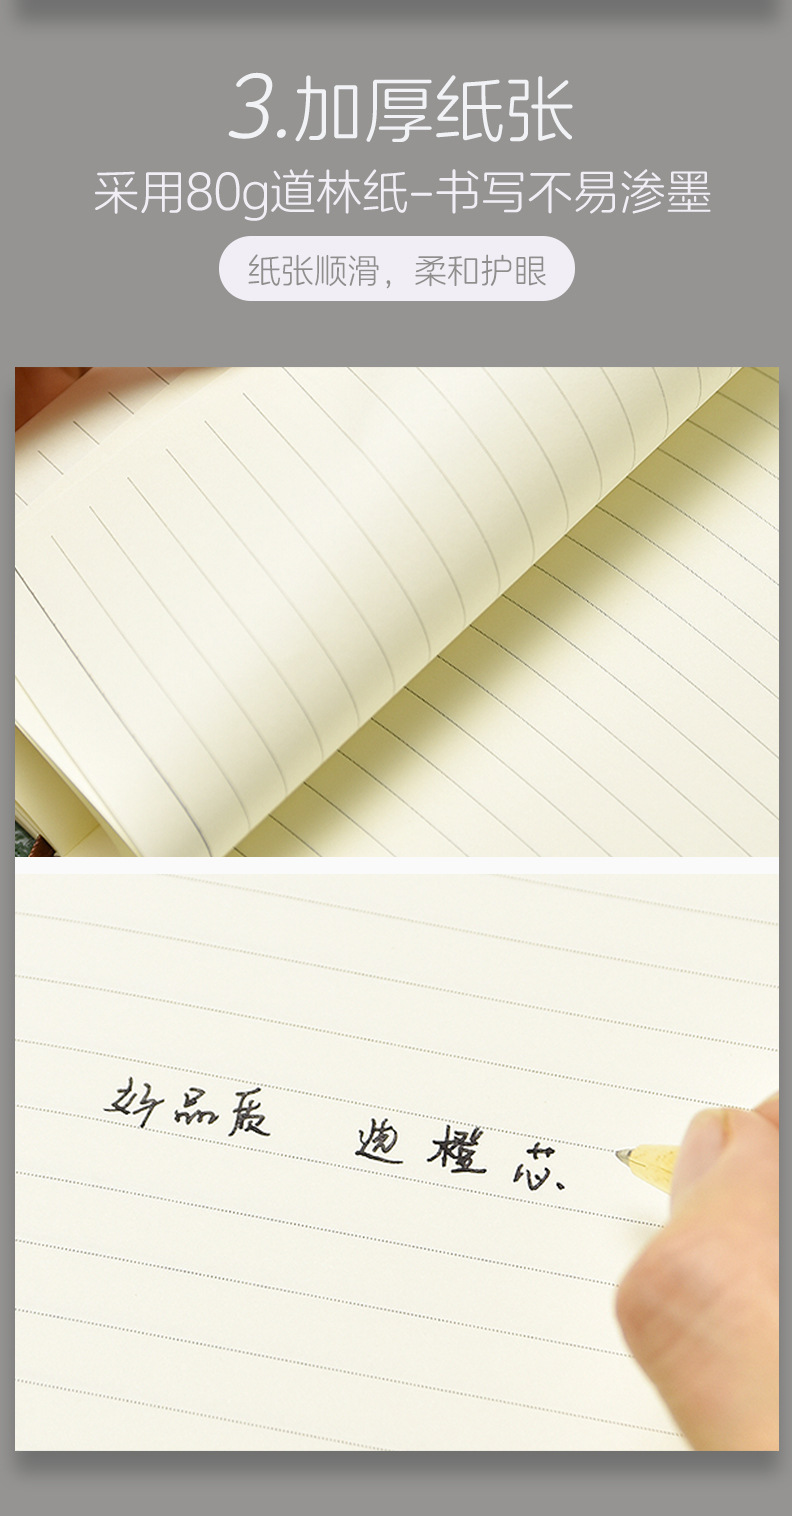 3.加厚纸张
采用80g道林纸-书写不易渗墨
纸张顺滑，柔和护眼
好品质 橙芯